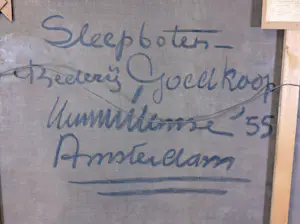 Sleepboten-
Rederij Goedkoop
'55
Amsterdam